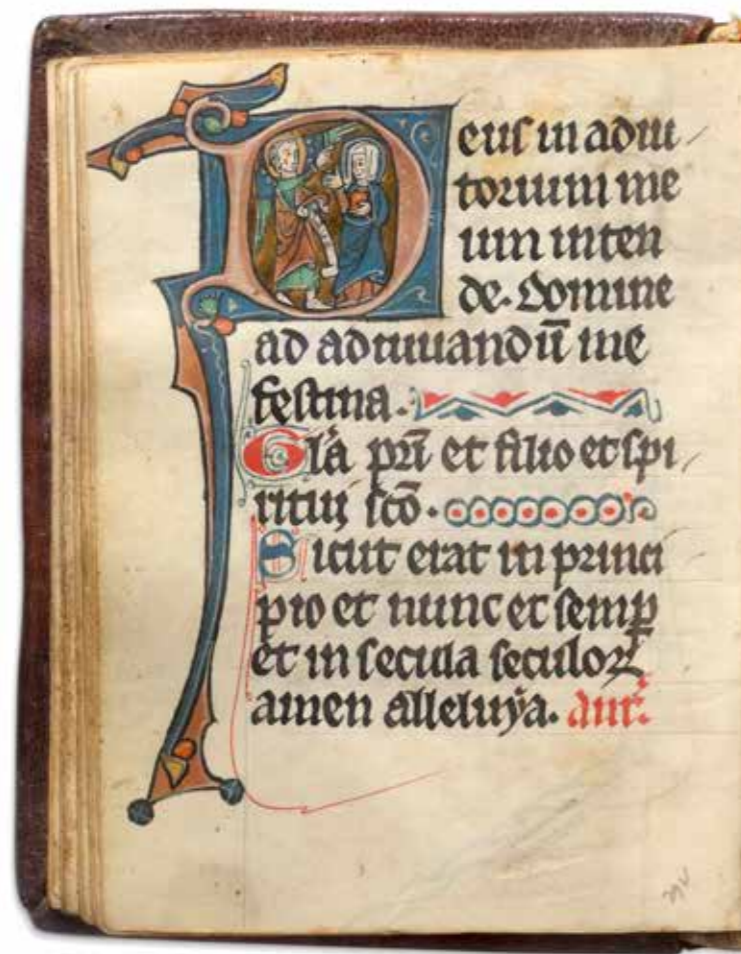 Deus in adiu
torium me
um inten
de. Domine
ad adiuuandū me
festina.
Gl'a pri̅ et filio et spi
ritui sc̅o.
Sicut erat in princi
pio et nunc et semp̲
et in secula seculoꝝ
amen alleluya. an̅t.